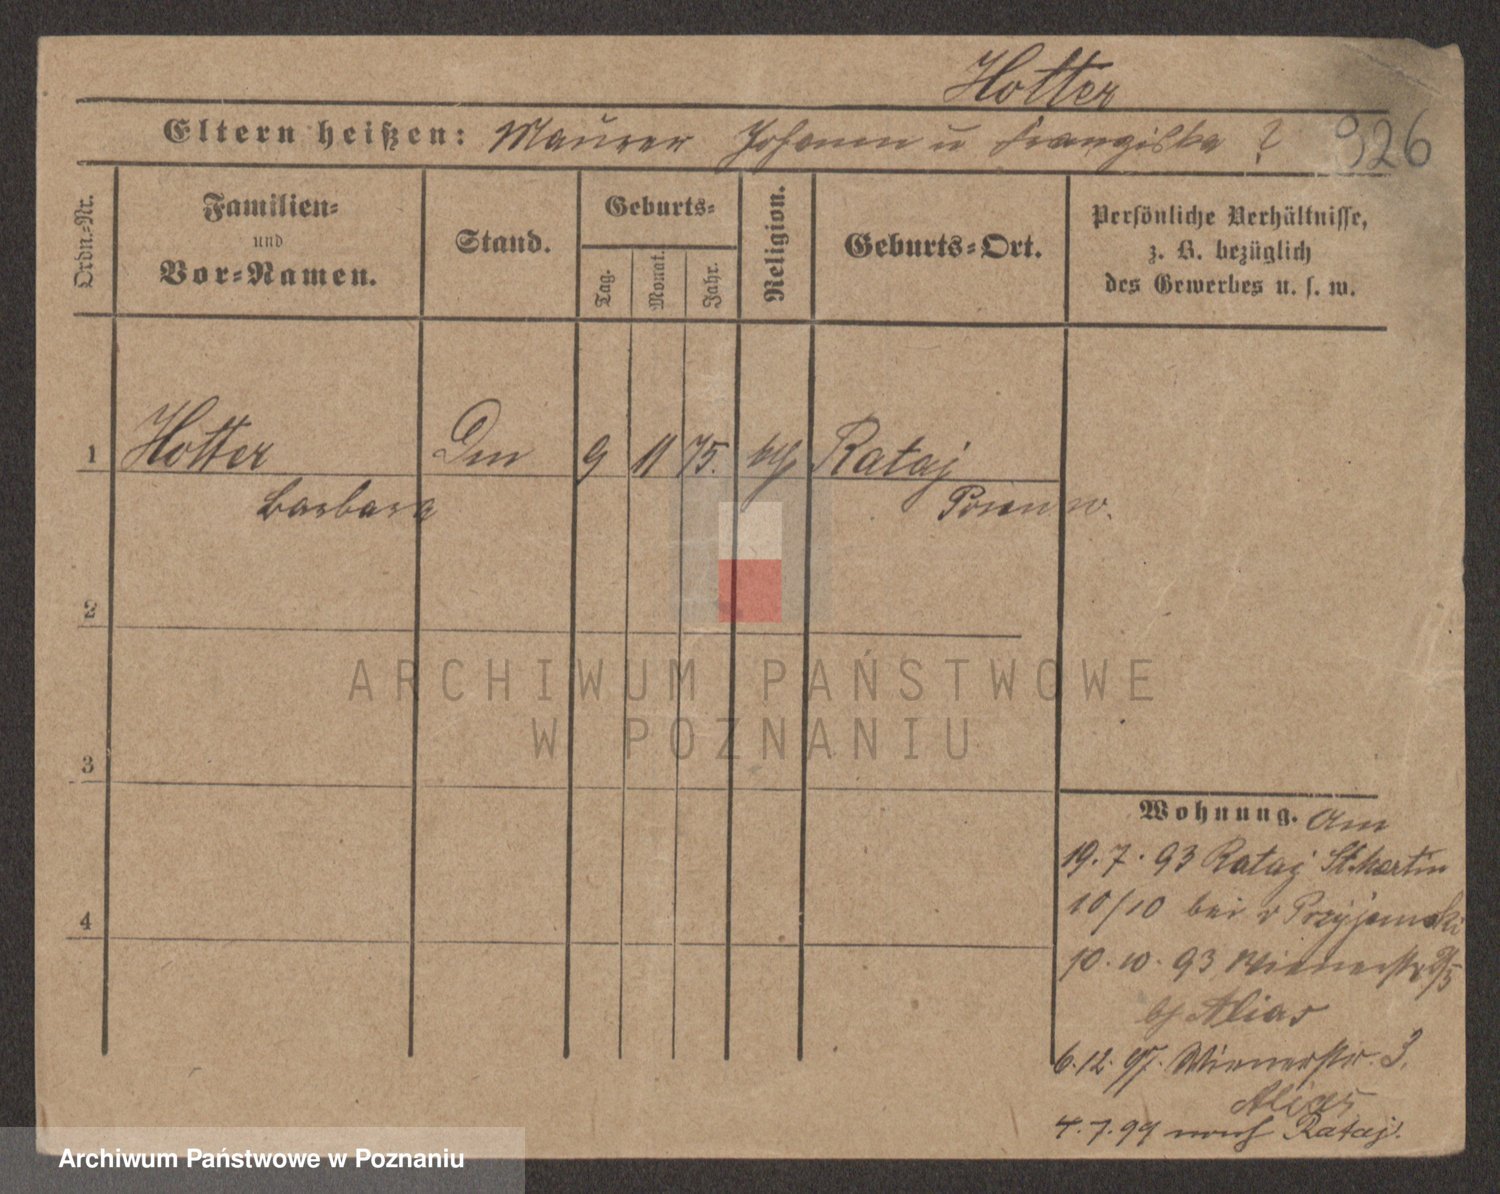 Hotter
Eltern heißen: Maurer Johann u Franziska ?
926
Ordn.-Nr.
Familien-
und
Vor-Namen.
Stand.
Geburts-
Tag.
Monat.
Jahr.
Religion.
Geburts-Ort.
Persönliche Verhältnisse,
z. B. bezüglich
des Gewerbes u. s. w.
1 Hotter Dm 9 11 75. kth Rataj
Barbara Posen W.
2
3
4
ARCHIWUM PAŃSTWOWE
W POZNANIU
Wohnung. Am
19. 7. 93 Rataj St. Martin
10/10 bei v Przyjemski
10. 10. 93 Wienerstr
bj Alias
6. 12. 97. Wienerstr. 3.
Alias
4. 7. 99 nach Rataj.
Archiwum Państwowe w Poznaniu